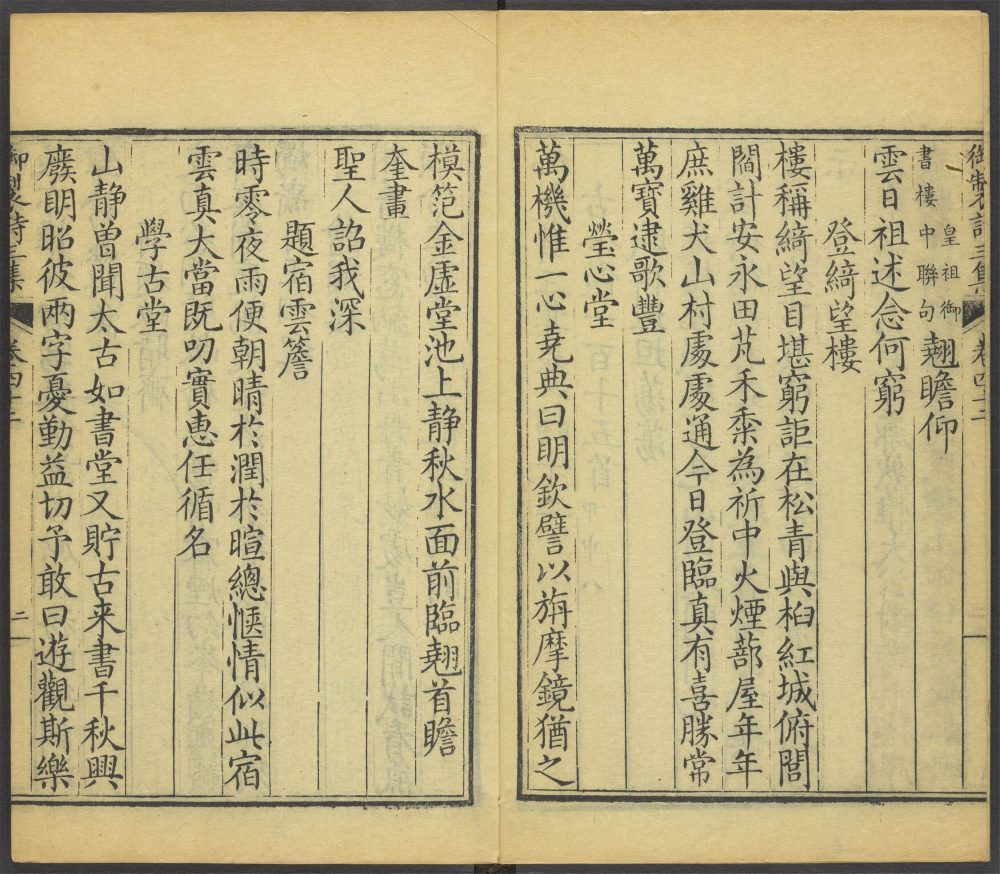 御製詩三集 卷四十二
書樓中聯句 皇祖御 翹瞻仰
雲日祖述念何窮
登綺望樓
樓稱綺望目堪窮詎在松青與柏紅城俯閭
閻計安永田芃禾黍為祈中火煙蔀屋年年
庶雞犬山村處處通今日登臨真有喜勝常
萬寶逮歌豐
瑩心堂
萬機惟一心堯典曰明欽譬以旃摩鏡猶之
模笵金虛堂池上静秋水面前臨翹首瞻
奎畫
聖人詔我深
題宿雲簷
時零夜雨便朝晴於潤於暄總愜情似此宿
雲真大當既叨實恵任循名
學古堂
山静曽聞太古如書堂又貯古来書千秋興
廢明昭彼兩字憂勤益切予敢曰遊觀斯樂
御製詩三集 卷四十二 二